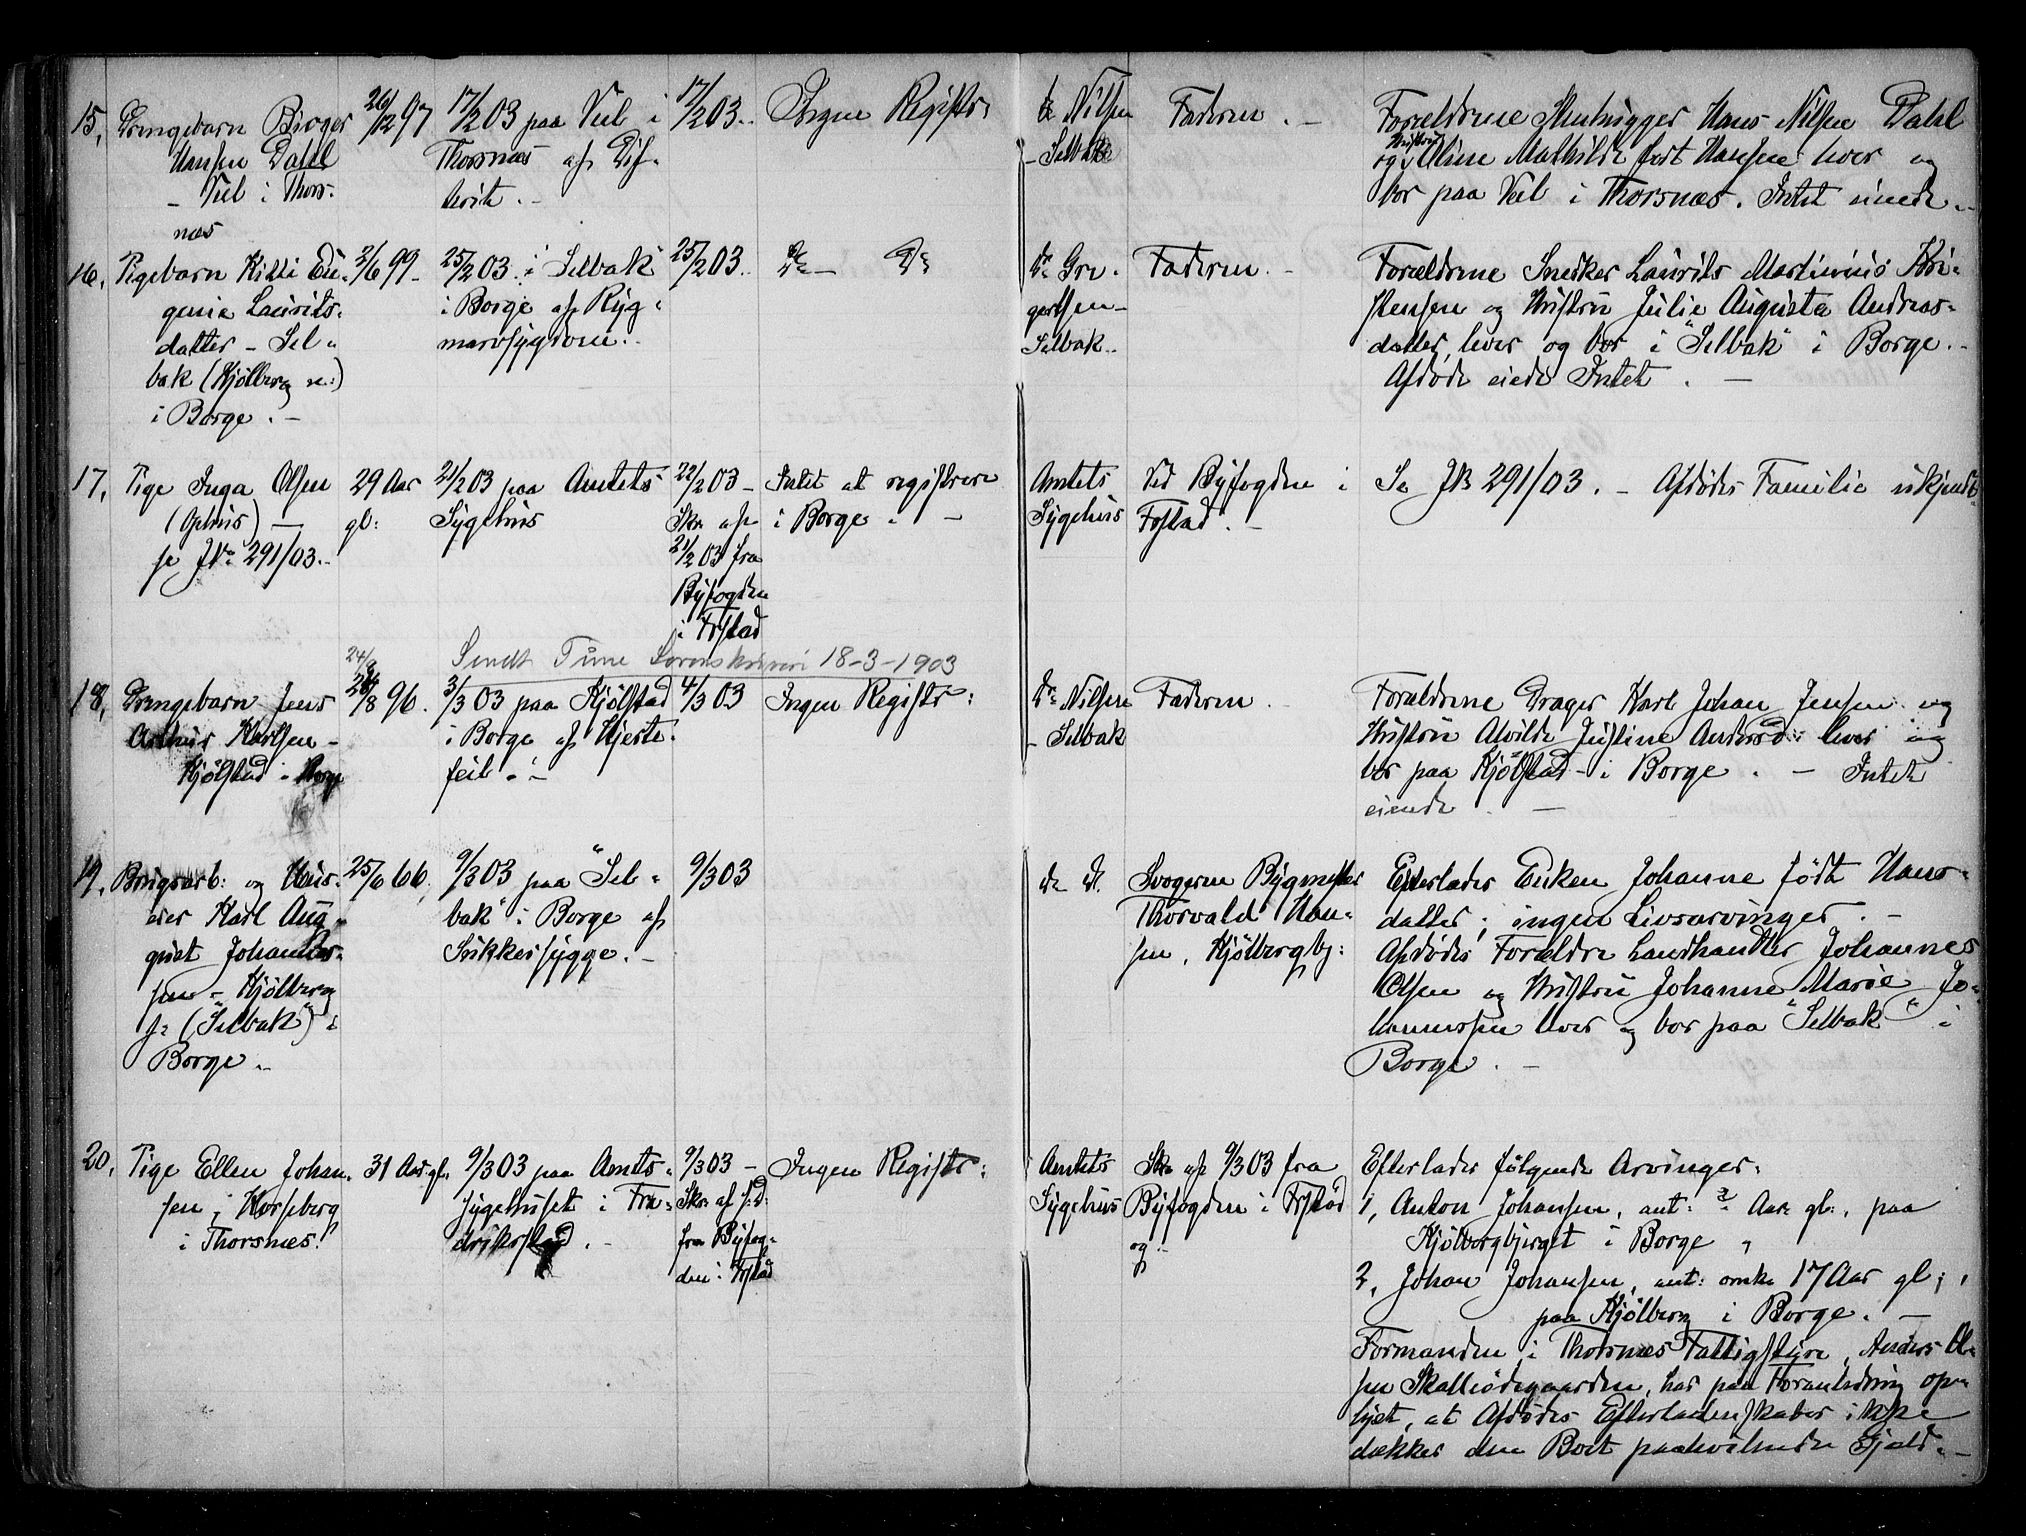 15, Drengebarn Birger
Hansen Dahl
– Vel i Thors-
næs
26/12 97
17/2 03 paa Vel i
Thorsnæs af Dif-
terit. –
17/2 03.
Ingen Registr:
Nilsen
– Selbak
Faderen. –
Forældrene Stenhugger Hans Nilsen Dahl
Hustru
og Oline Mathilde født Hansen lever og
bor paa Vel i Thorsnæs. Intet eiende. –
16, Pigebarn Kitti Eu-
genie Laurits-
datter – Sel-
bak (Kjölberg n:)
i Borge. –
2/6 99 –
25/2 03. i Selbak
i Borge af Ryg-
marvsygdom. –
25/2 03.
Do – Do
Do Gre-
gersen –
Selbak.
Faderen. –
Forældrene Snedker Laurits Martinius Kri-
stensen og Hustru Julie Augusta Andreas-
datter, lever og bor i "Selbak" i Borge. –
Afdöde eiede Intet. –
17, Pige Inga Olsen
(Ophus) –
se JNo 291/03. –
29 Aar
gl:
21/2 03 paa Amtets
Sygehus
22/2 03 –
Skr. af
21/2 03 fra
Byfogden
i Frstad
Intet at registrere
i Borge. –
Amtets
Sygehus
Ved Byfogden i
Frstad. –
Se JNo 291/03. – Afdödes Familie ukjendt.
Sendt Tune Sorenskriveri 18-3-1903
18, Drengebarn Jens
Arthur Karlsen –
Kjölstad i Borge
24/8
24/8 96.
3/3 03 paa Kjölstad
i Borge af Hjerte-
feil. –
4/3 03
Ingen Registr:
Do Nilsen
– Selbak
Faderen. –
Forældrene Drager Karl Johan Jensen og
Hustru Alvilde Justine Andersd: lever og
bor paa Kjölstad i Borge. – Intet
eiende. –
19, Brugsarb: og Hus-
eier Karl Aug-
gust Johannes-
sen – Kjölberg
s: ("Selbak") i
Borge. –
25/6 66,
9/3 03 paa "Sel-
bak" i Borge af
Sukkersygge. –
9/3 03
Do Do
Svogeren Bygmester
Thorvald Han-
sen, Kjölbergbj:
Efterlader Enken Johanne födt Hans-
datter; ingen Livsarvinger. –
Afdödes Forældre Landhandler Johannes
Olsen og Hustru Johanne Marie Jo-
hannessen lever og bor paa "Selbak" i
Borge. –
20, Pige Ellen Johan-
sen, Horseberg
i Thorsnæs.
31 Aar gl.
9/3 03 paa Amts-
sygehuset i Fre-
drikstad. –
9/3 03 –
Skr. af s: D:
fra Byfog-
den i Frstad
Ingen Registr:
Amtets
Sygehus
Skr af 9/3 03 fra
Byfogden i Frstad
og –
Efterlader følgende Arvinger:
1, Anton Johansen, ant: ? Aar gl:, paa
Kjölbergbjerget i Borge,
2, Johan Johansen, ant: omkr 17 Aar gl;,
paa Kjölberg i Borge. –
Formanden i Thorsnæs Fattigstyre, Anders Ol-
sen Skallerödegaarden, har paa Foranledning op-
lyst, at Afdödes Efterladenskaber ikke
dækker den Boet paahvilende Gjæld. –